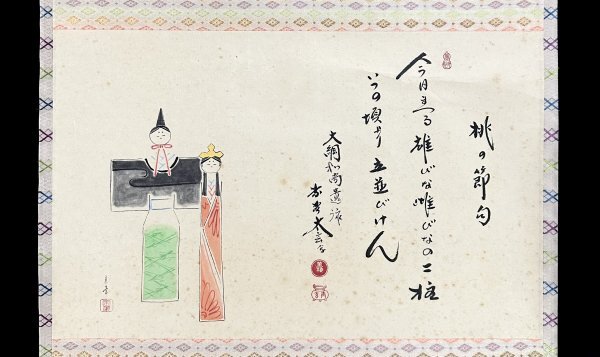 桃の節句
今日まつる雄びな雌びなの二柱
いつの頃より立並びけん
大綱和尚遺詠